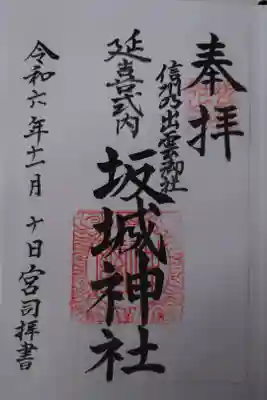 奉拝
信州乃出雲御社
延喜式内
坂城神社
令和六年十一月十日宮司拝書